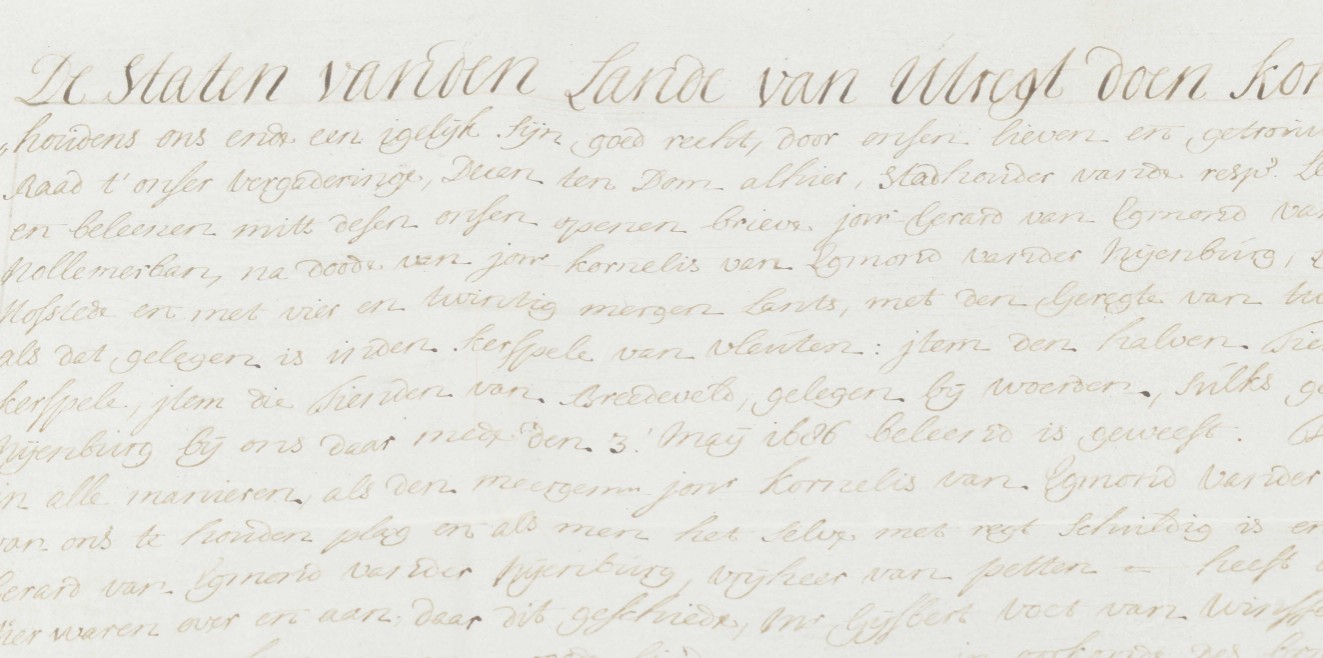 De Staten vanden Lande van Utregt doen
houdens ons ende een igelijk sijn goed recht, door onsen lieven en getrouw
Raad t'onser vergaderinge, Deken ten Dom alhier, Stadhouder vande resp.
en beleenen mitt desen onsen openen brieve jonr Gerard van Egmond
Nollemerban, na doode van jonr Kornelis van Egmond vander Nijenburg,
Hofstede en met vier en twintig mergen Lants, met den Geregte van
als dat gelegen is inden kerspele van vleuten: jtem den halven
kerspele, jtem die tienden van Breedeveld, gelegen bij woerden, sulks
Nijenburg bij ons daar mede den 3. Maij 1686 beleend is geweest.
in alle manieren als den meergem jonr Kornelis van Egmond vander
van ons te houden plag en als men het selve met regt schuldig is
Gerard van Egmond vander Nijenburg, vrijheer van petten - heeft
hier waren over en aan, daar dit geschiede, Mr Gijsbert voet van